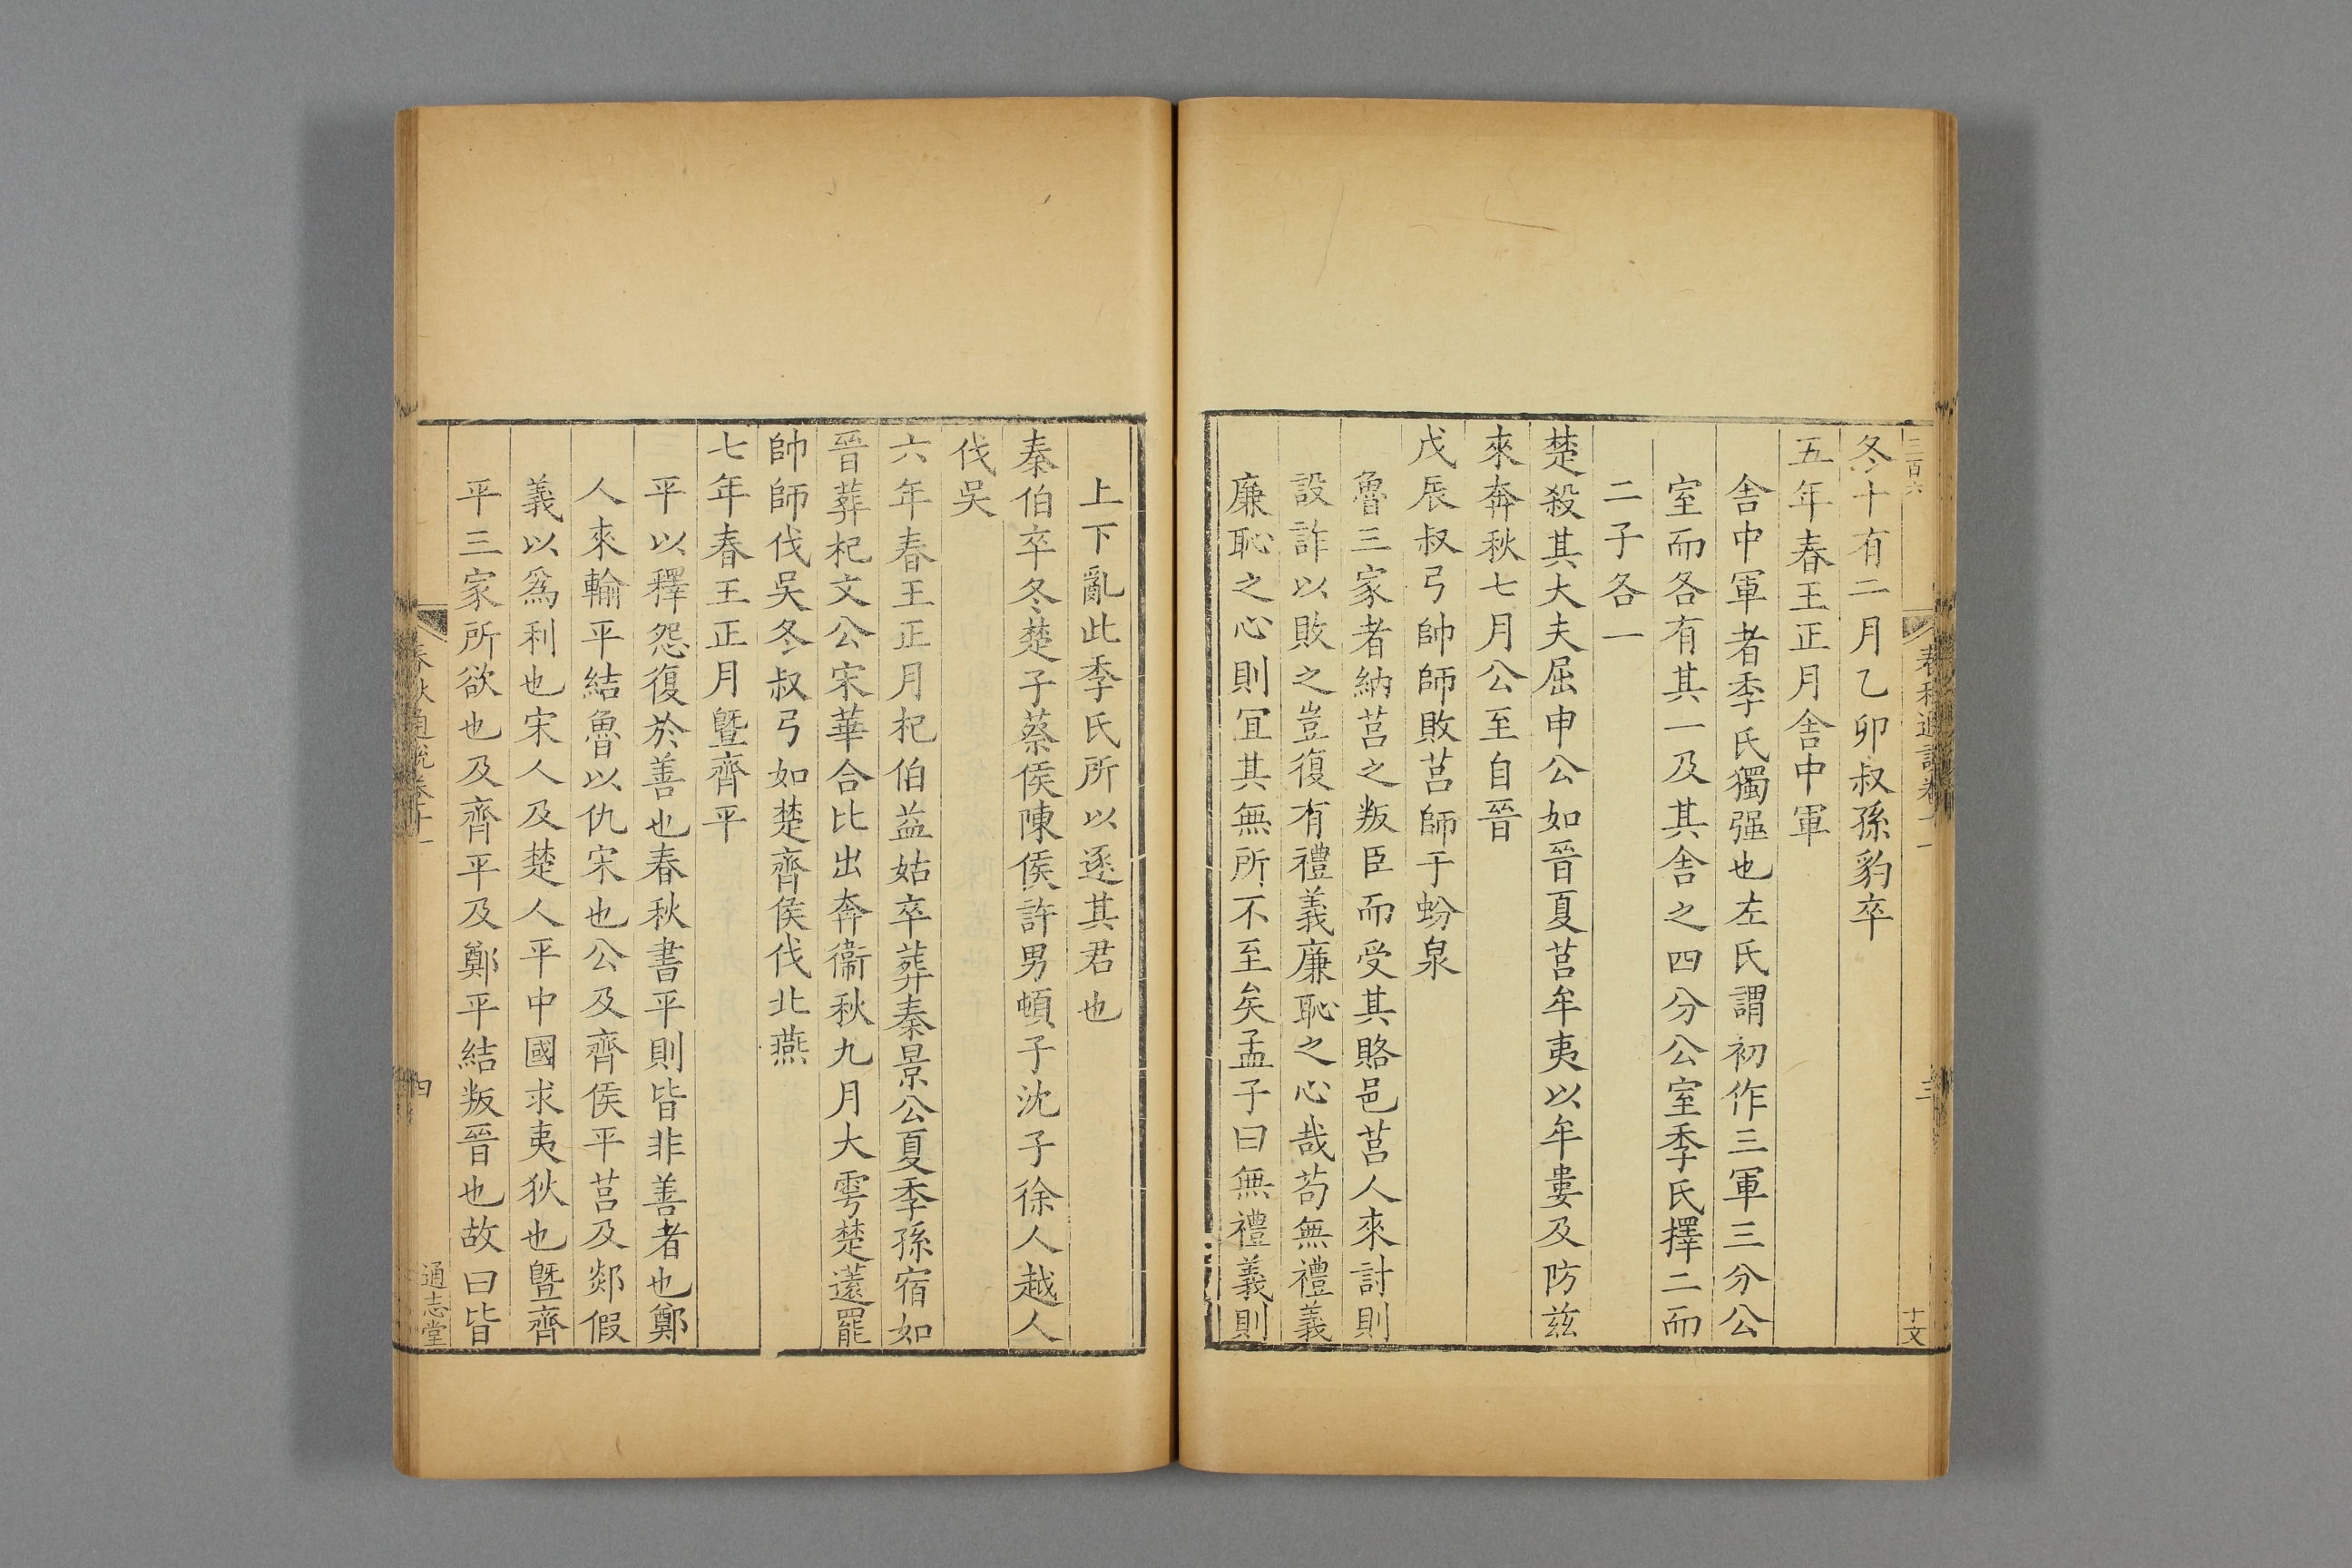 三百六
春秋通說卷十一
三
十文
冬十有二月乙卯叔孫豹卒
五年春王正月舎中軍
舎中軍者季氏獨强也左氏謂初作三軍三分公
室而各有其一及其舎之四分公室季氏擇二而
二子各一
楚殺其大夫屈申公如晉夏莒牟夷以牟婁及防兹
來奔秋七月公至自晉
戊辰叔弓帥師敗莒師于蚡泉
魯三家者納莒之叛臣而受其賂邑莒人來討則
設詐以敗之豈復有禮義廉恥之心哉苟無禮義
廉恥之心則冝其無所不至矣孟子曰無禮義則
上下亂此季氏所以逐其君也
秦伯卒冬楚子蔡侯陳侯許男頓子沈子徐人越人
伐吳
六年春王正月杞伯益姑卒葬秦景公夏季孫宿如
晉葬杞文公宋華合比出奔衞秋九月大雩楚薳罷
帥師伐吳冬叔弓如楚齊侯伐北燕
七年春王正月曁齊平
平以釋怨復於善也春秋書平則皆非善者也鄭
人來輸平結魯以仇宋也公及齊侯平莒及郯假
義以爲利也宋人及楚人平中國求夷狄也曁齊
平三家所欲也及齊平及鄭平結叛晉也故曰皆
春秋通說卷十一
四
通志堂